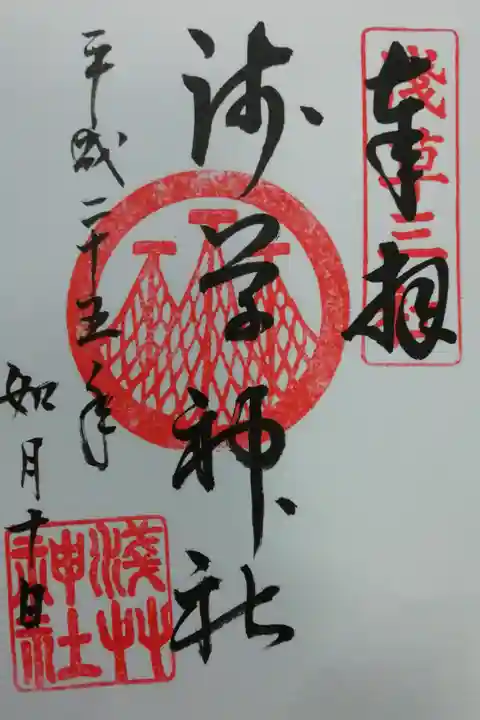 奉拝
淺草三社
浅草神社
平成二十五年
如月十日
淺草
神社